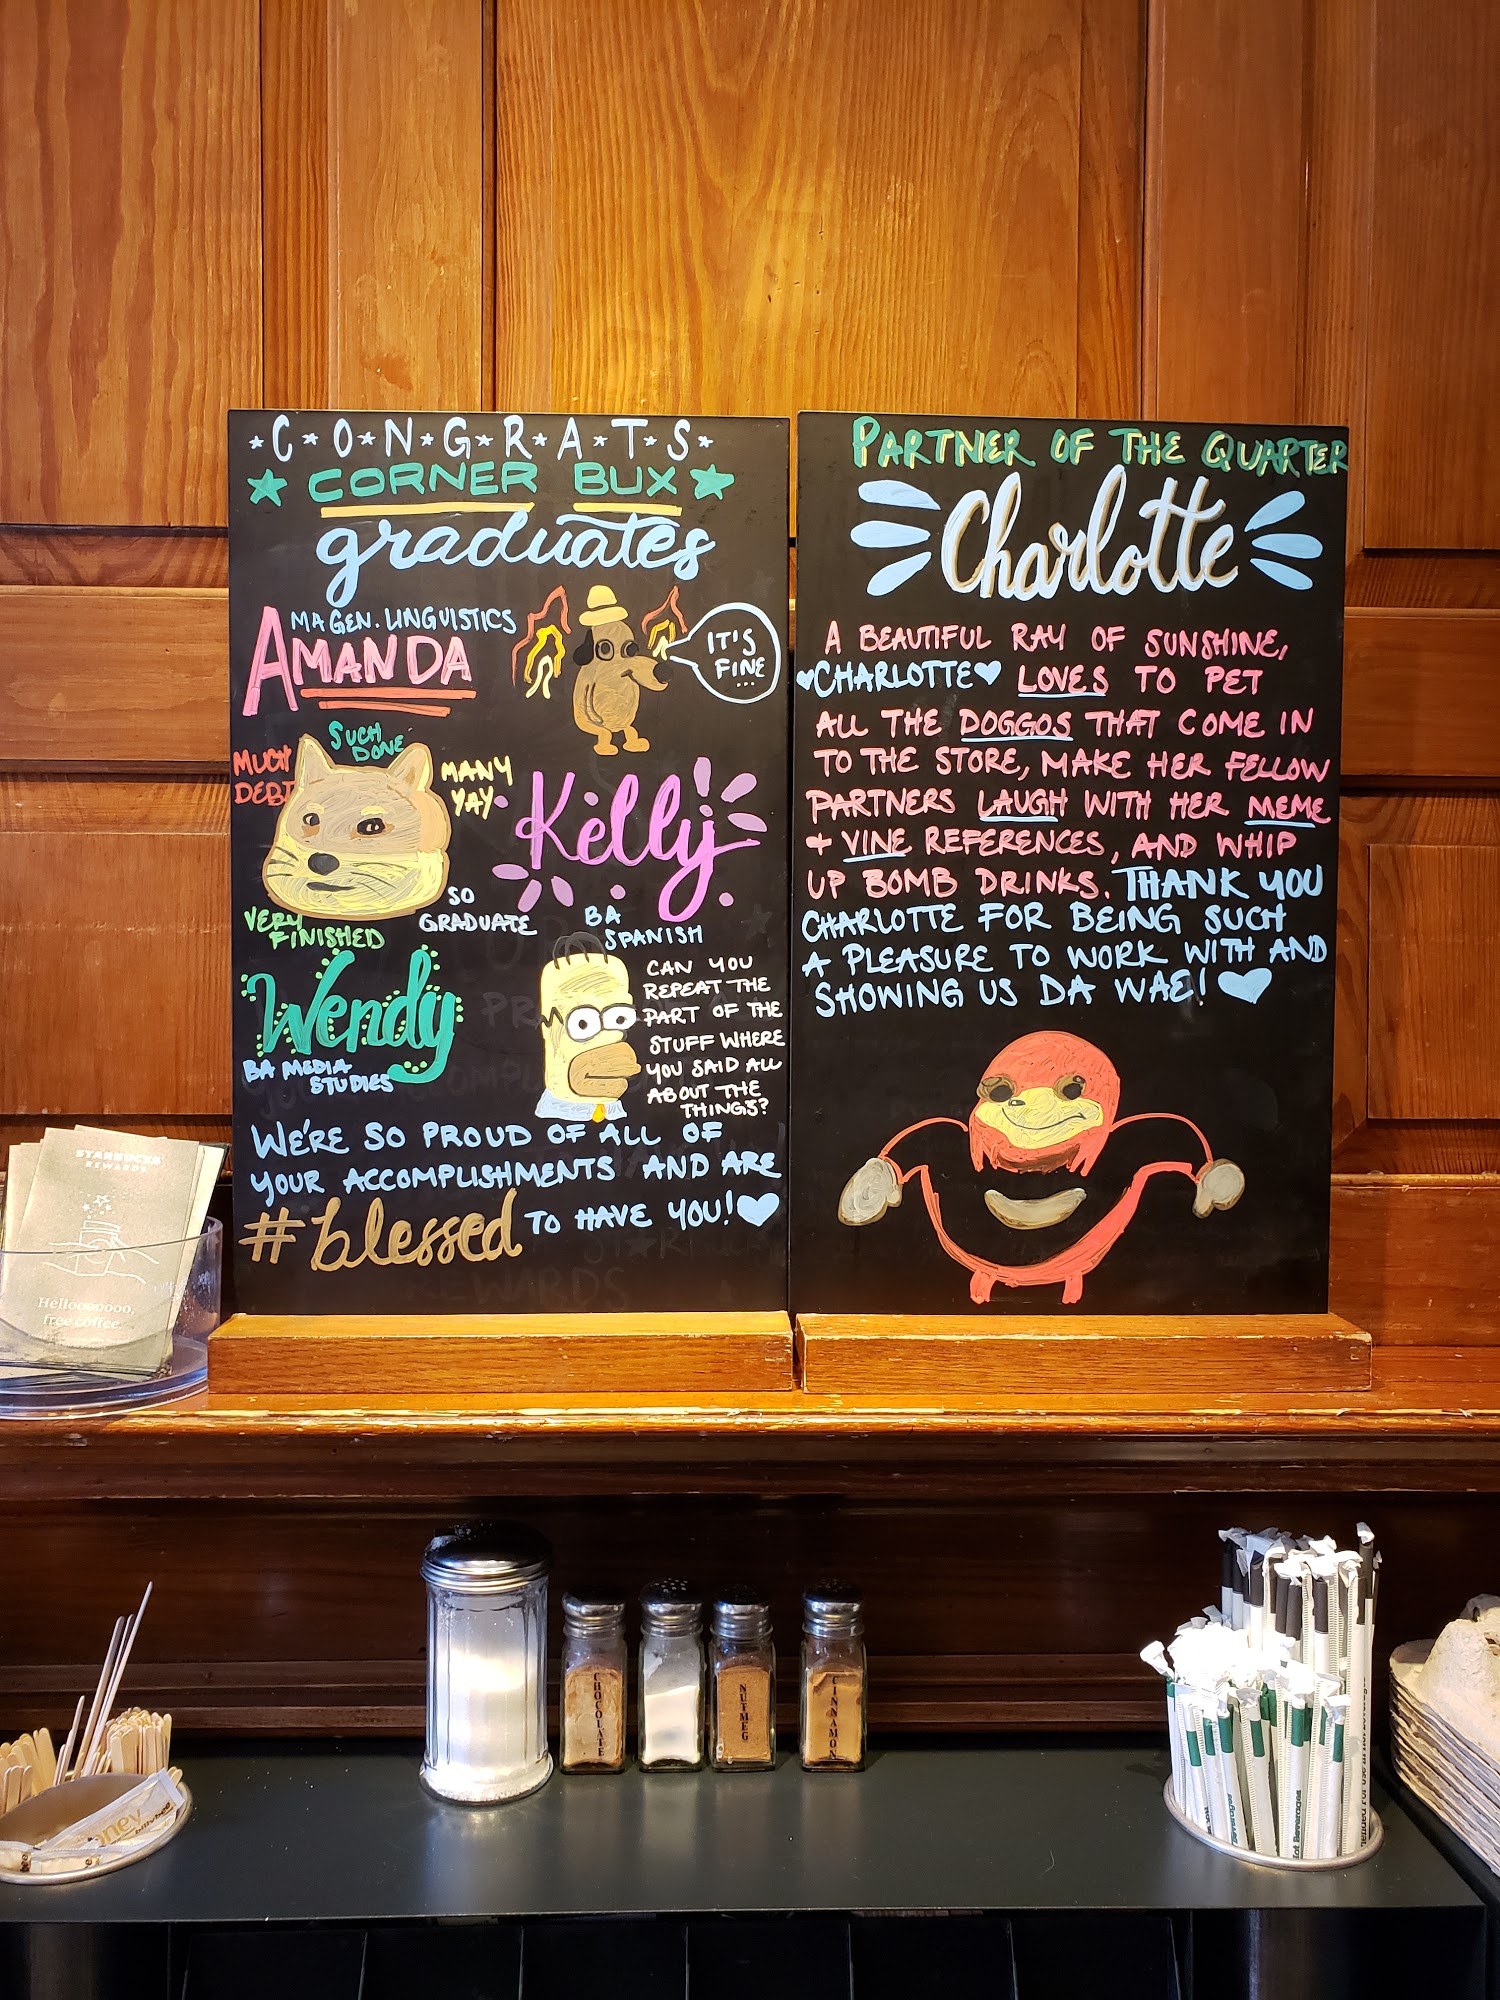 C·O·N·G·R·A·T·S
CORNER BUX
graduates
MA GEN. LINGUISTICS
AMANDA
IT'S
FINE
...
MUCH
DEBT
SUCH
DONE
MANY
YAY
VERY
FINISHED
SO
GRADUATE
Kelly
BA
SPANISH
Wendy
BA MEDIA
STUDIES
CAN YOU
REPEAT THE
PART OF THE
STUFF WHERE
YOU SAID ALL
ABOUT THE
THINGS?
WE'RE SO PROUD OF ALL OF
YOUR ACCOMPLISHMENTS AND ARE
#blessed TO HAVE YOU!
PARTNER OF THE QUARTER
Charlotte
A BEAUTIFUL RAY OF SUNSHINE,
CHARLOTTE LOVES TO PET
ALL THE DOGGOS THAT COME IN
TO THE STORE, MAKE HER FELLOW
PARTNERS LAUGH WITH HER MEME
+ VINE REFERENCES, AND WHIP
UP BOMB DRINKS. THANK YOU
CHARLOTTE FOR BEING SUCH
A PLEASURE TO WORK WITH AND
SHOWING US DA WAE!
STARBUCKS
REWARDS
Helloooooooo,
free coffee.
CHOCOLATE
NUTMEG
CINNAMON